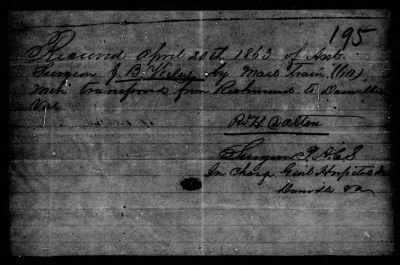 195
Received April 20th 1863 of Asst.
Surgeon J. B. Wiley by Mail Train (60)
men transferred from Richmond to Danville
R H Dalton
Surgeon P.A.C.S
In Charge Genl Hospital
Danville Va